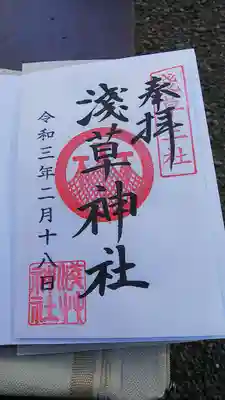 奉拝
淺草神社
令和三年二月十八日
淺草神社